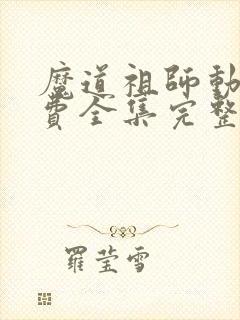 魔道祖師動
費全集完整
羅莹雪